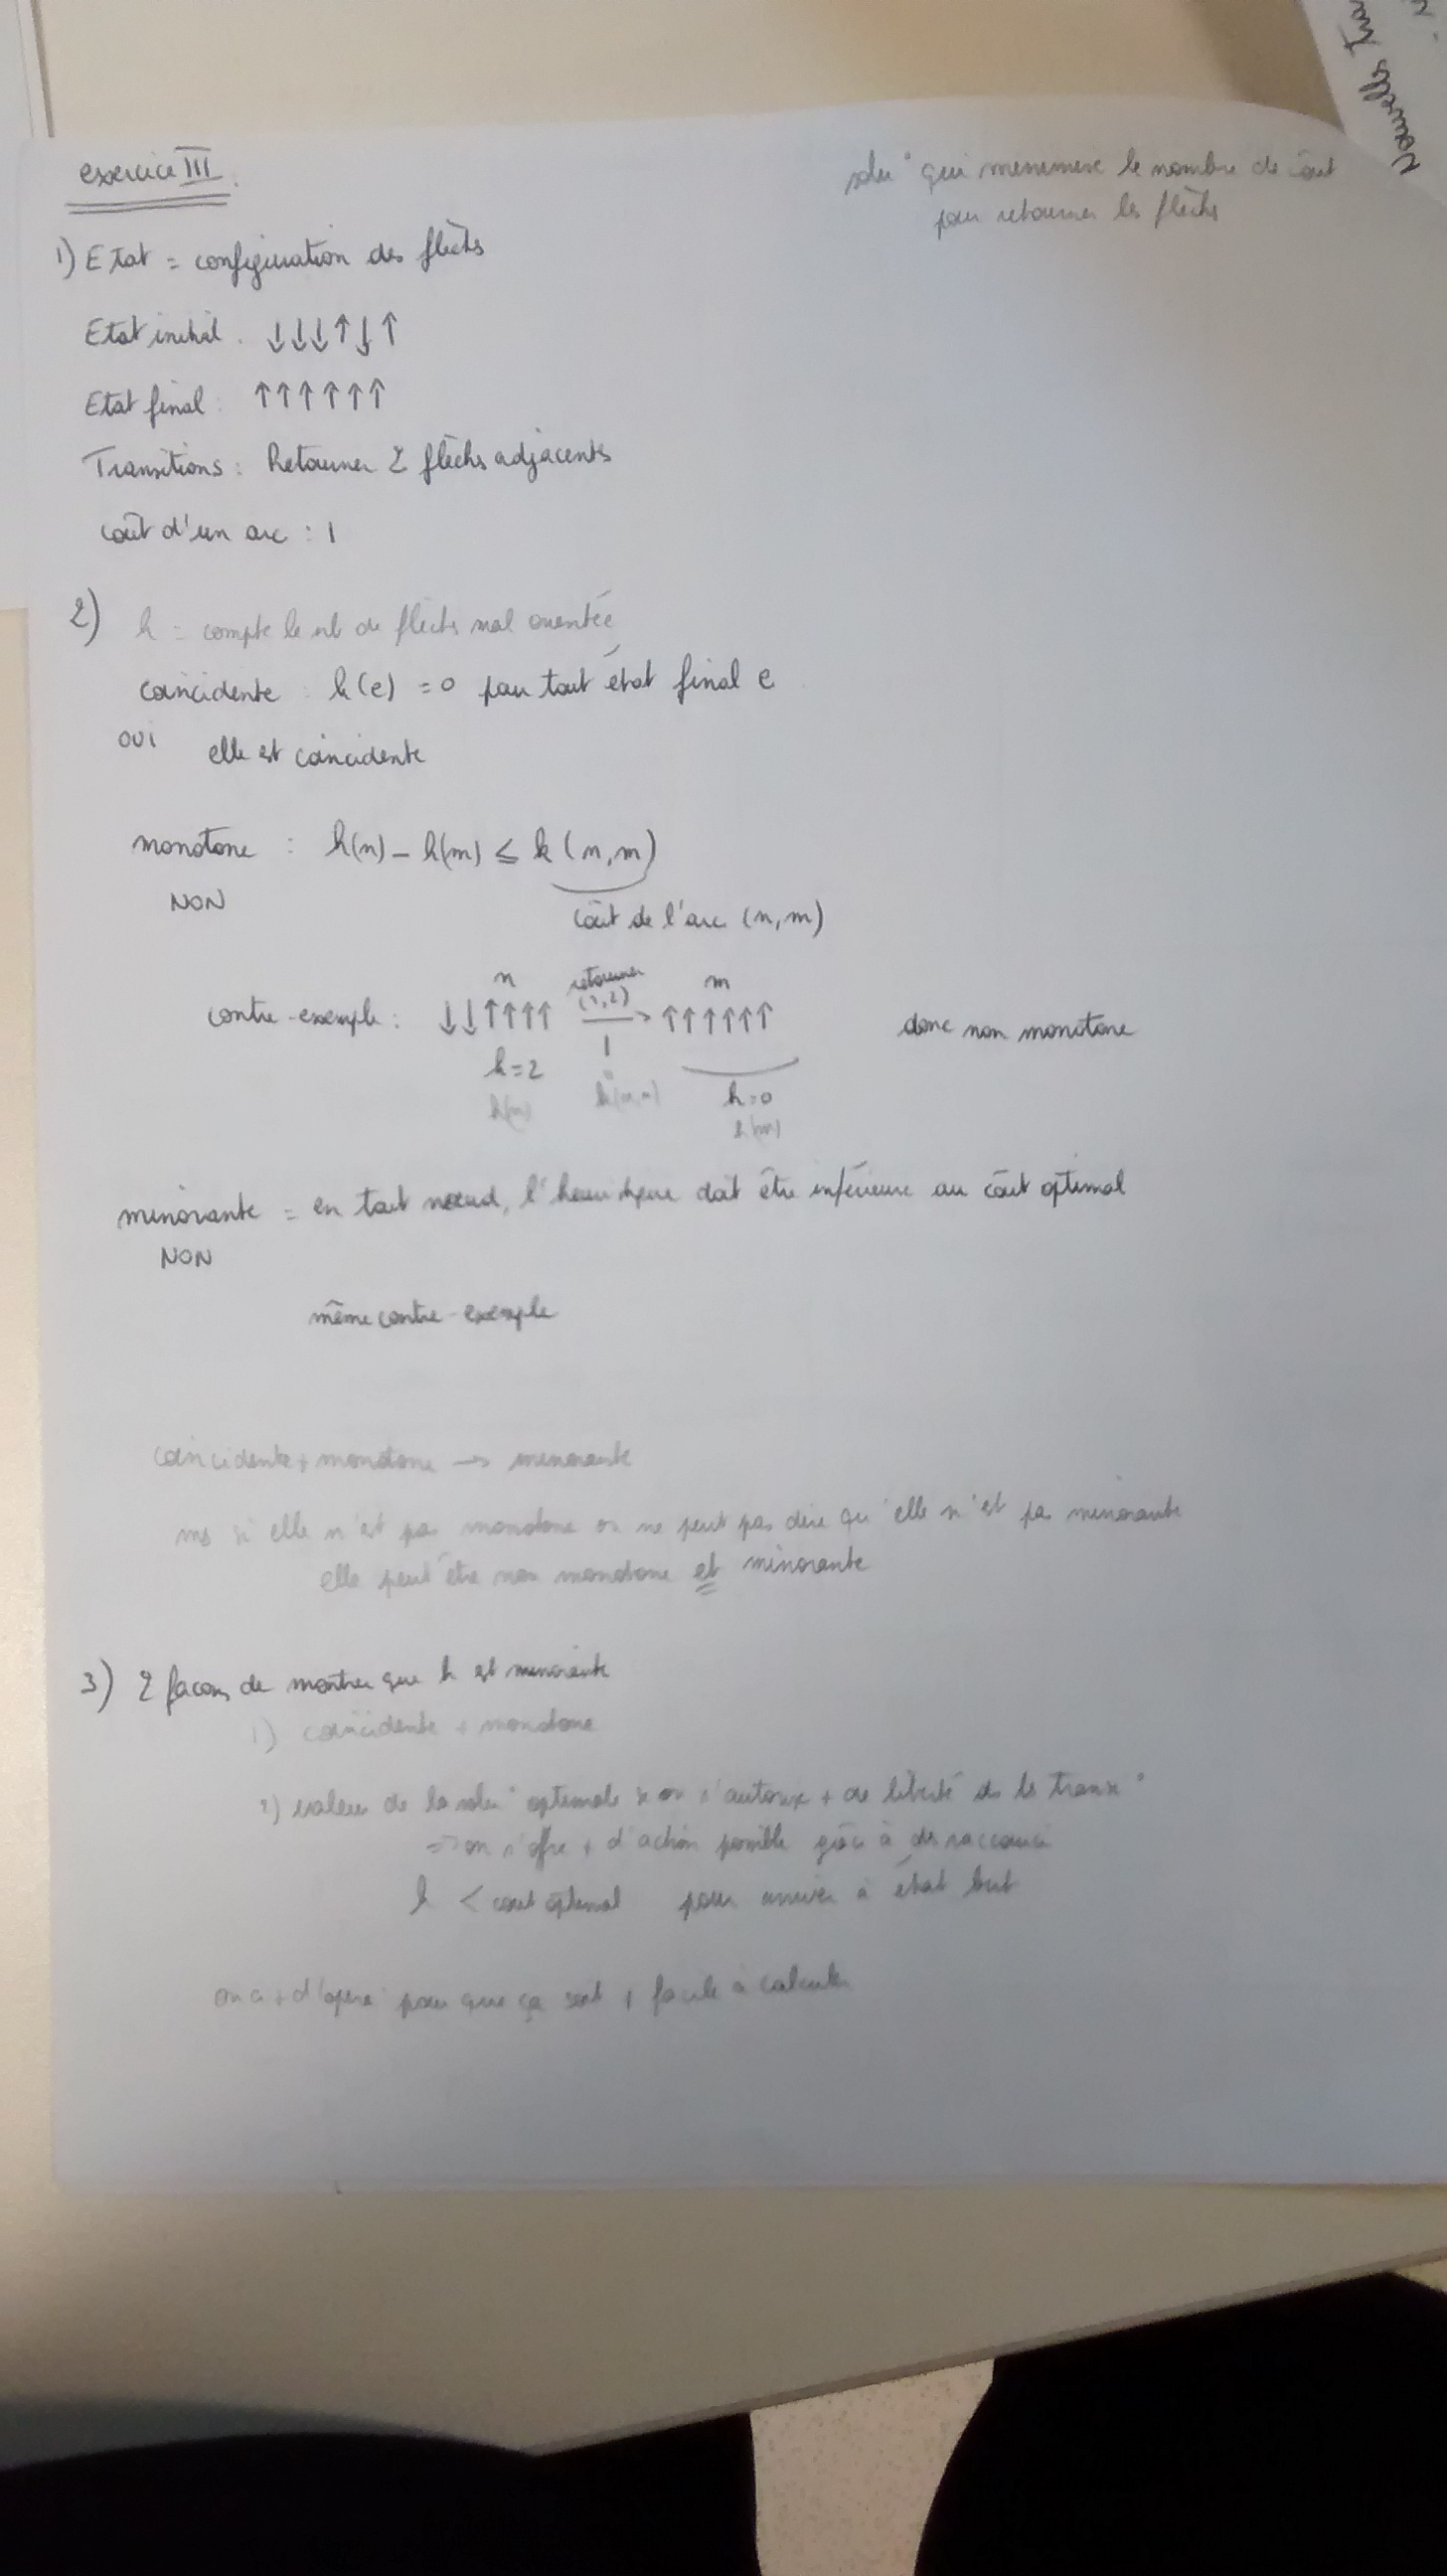 Nouvelles
exercice III.
solu° qui minimise le nombre de coût
pour retourner les flèchs
1) Etat = configuration des flèchs
Etat initial : ↓↓↓↑↓↑
Etat final : ↑↑↑↑↑↑
Transitions : Retourner 2 flèchs adjacents
coût d'un arc : 1
2) h = compte le nb de flèchs mal orientée
coincidente : h(e) = 0 pour tout état final e
OUI elle est coincidente
monotone : h(n) - h(m) ≤ k(n,m)
NON
coût de l'arc (n,m)
n retourner (1,2) m
contre-exemple : ↓↓↑↑↑↑ → ↑↑↑↑↑↑ donc non monotone
h=2 1 h=0
h(n) k(n,m) h(m)
minorante = en tout noeud, l'heuristique doit être inférieure au coût optimal
NON
même contre-exemple
coincidente + monotone → minorante
ms si elle n'est pas monotone on ne peut pas dire qu'elle n'est pas minorante
elle peut être non monotone et minorante
3) 2 facons de montrer que h est minorante
1) coincidente + monotone
2) valeur de la solu° optimale si on s'autorise + de liberté ds les trans°
=> on s'offre + d'action possible grâce à des raccourci
h < cout optimal pour arriver à état but
on a + d'opéra° pour que ça soit + facile à calculer